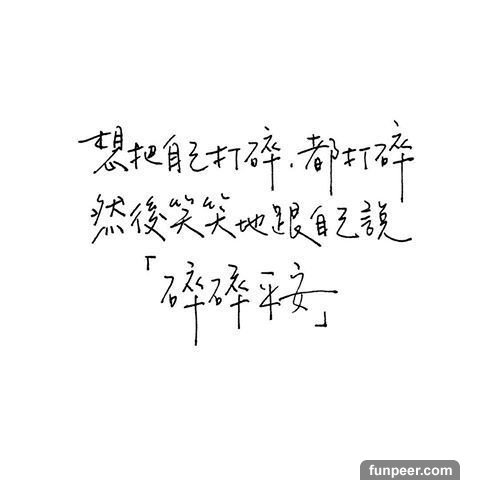 想把自己打碎.都打碎
然後笑笑地跟自己說
「碎碎平安」
funpeer.com